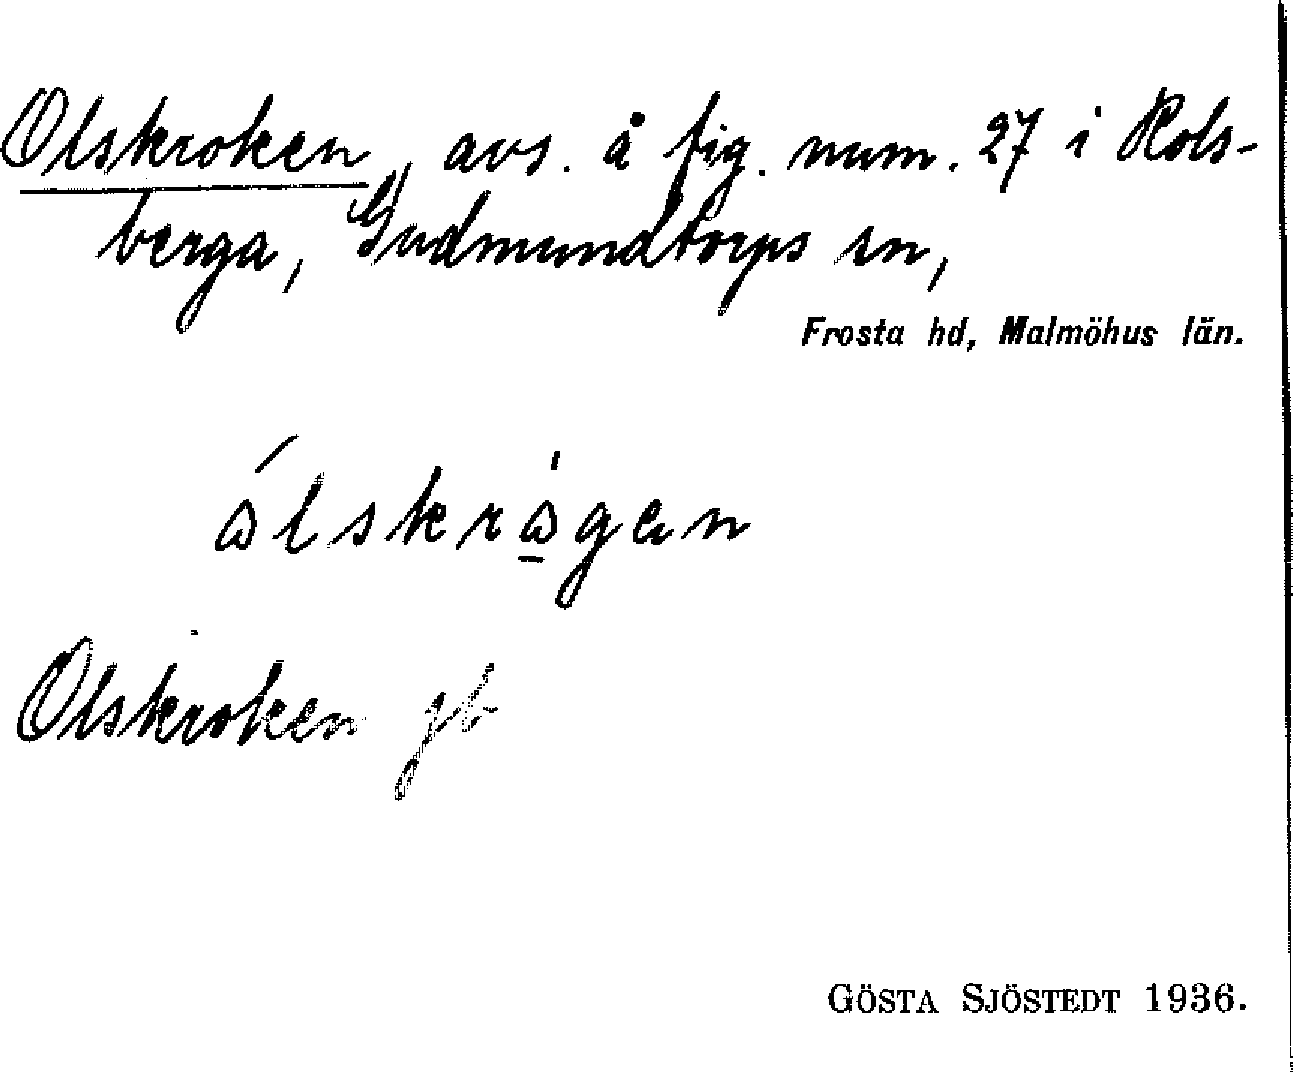 Olskroken, avs. å fig. num. 27 i Rols-
berga, Gudmundtorps sn,
Frosta hd, Malmöhus län.
ålskrågen
Olskroken jb
GÖSTA SJÖSTEDT 1936.